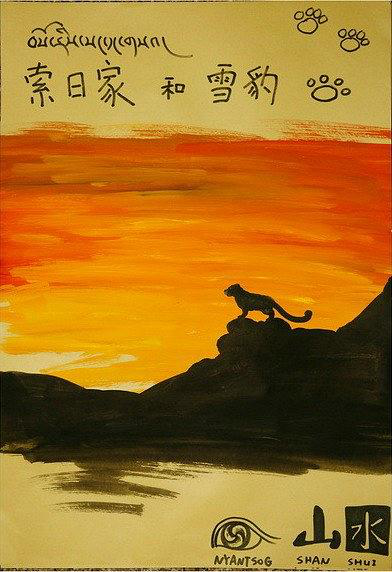 索日家 和 雪豹
山水
NYANTSOG SHAN SHUI